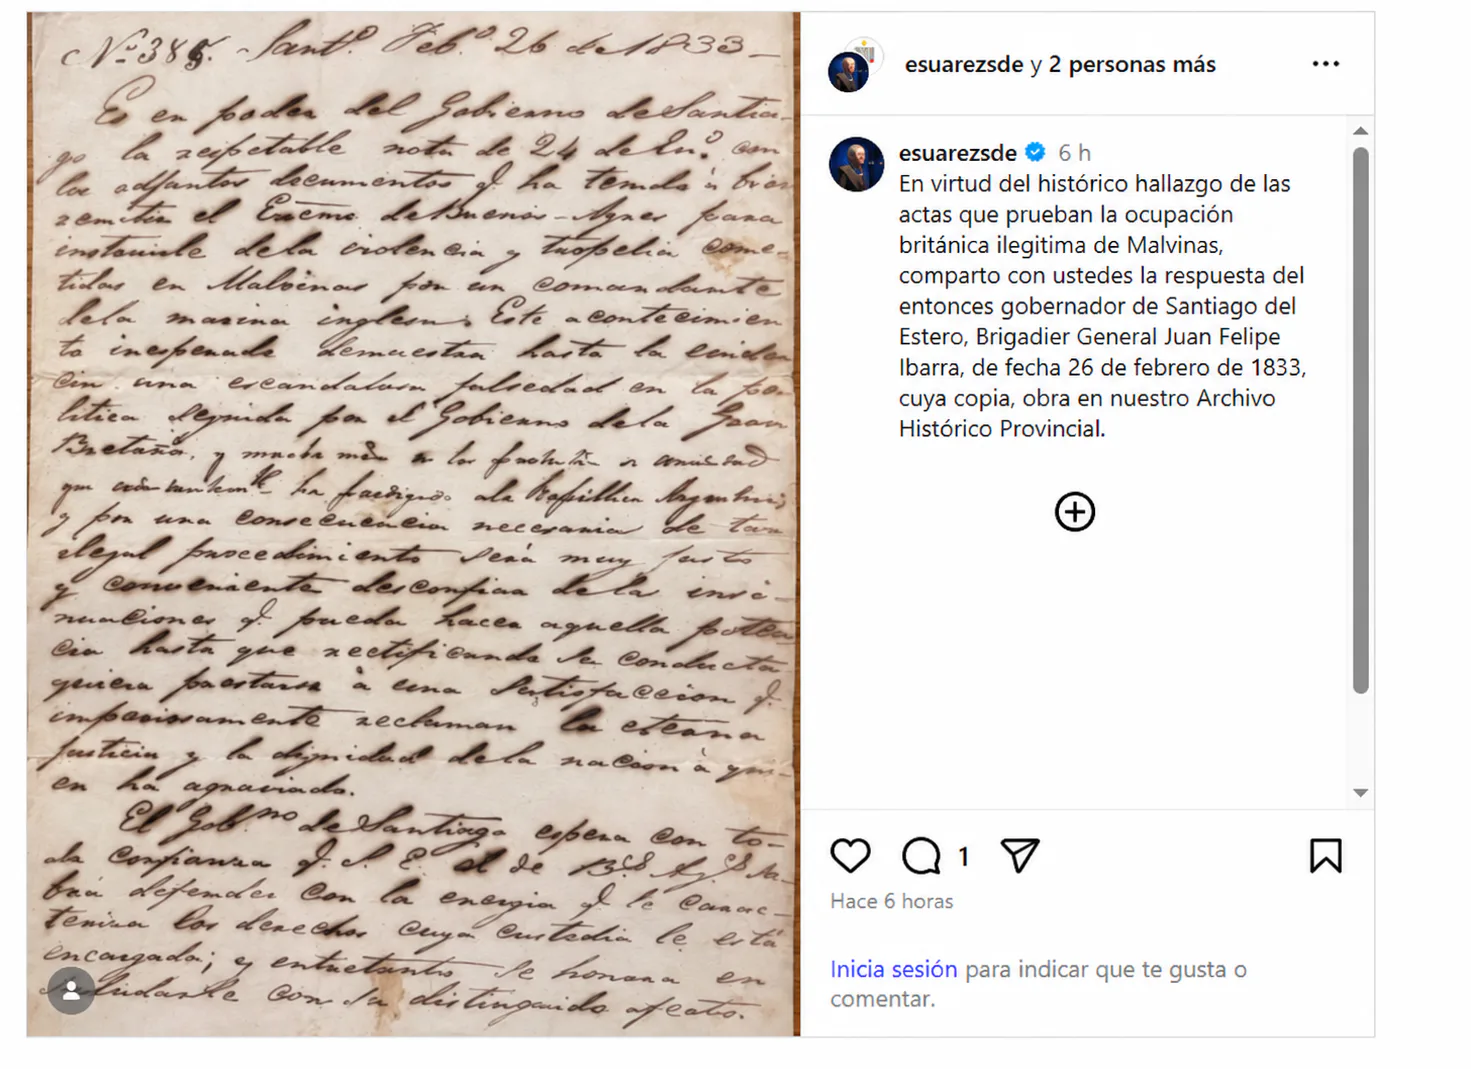 Nº 385. Santº. Febº. 26 de 1833
Es en poder del Gobierno de Santia-
go la respetable nota de 24 de Enº. con
los adjuntos documentos q. ha tenido à bien
remitir el Excmo. de Buenos-Ayres para
instruirle dela violencia y tropelia come-
tidas en Malvinas por un comandante
dela marina inglesa. Este acontecimien
to inesperado demuestra hasta la eviden
cia una escandalosa falsedad en la po-
litica seguida por el Gobierno dela Gran
Bretaña, y mucho mas en las de amistad
que ha prodigado ala Republica Argentina,
y por una consecuencia necesaria de tan
ilegal procedimiento será muy justo
y conveniente desconfiar delas insi-
nuaciones q. pueda hacer aquella poten
cia hasta que rectificando su conducta
quiera prestarse à una satisfaccion q.
imperiosamente reclaman la eterna
justicia y la dignidad dela nacion à qui-
en ha agraviado.
El Gobno de Santiago espera con to-
da confianza q. S. E. el de Bs. Ays. sa-
brá defender con la energia q. le carac-
teriza los derechos cuya custodia le está
encargada; y entretanto se honra en
saludarle con su distinguido afecto.
esuarezsde y 2 personas más
esuarezsde 6 h
En virtud del histórico hallazgo de las
actas que prueban la ocupación
británica ilegitima de Malvinas,
comparto con ustedes la respuesta del
entonces gobernador de Santiago del
Estero, Brigadier General Juan Felipe
Ibarra, de fecha 26 de febrero de 1833,
cuya copia, obra en nuestro Archivo
Histórico Provincial.
1
Hace 6 horas
Inicia sesión para indicar que te gusta o
comentar.